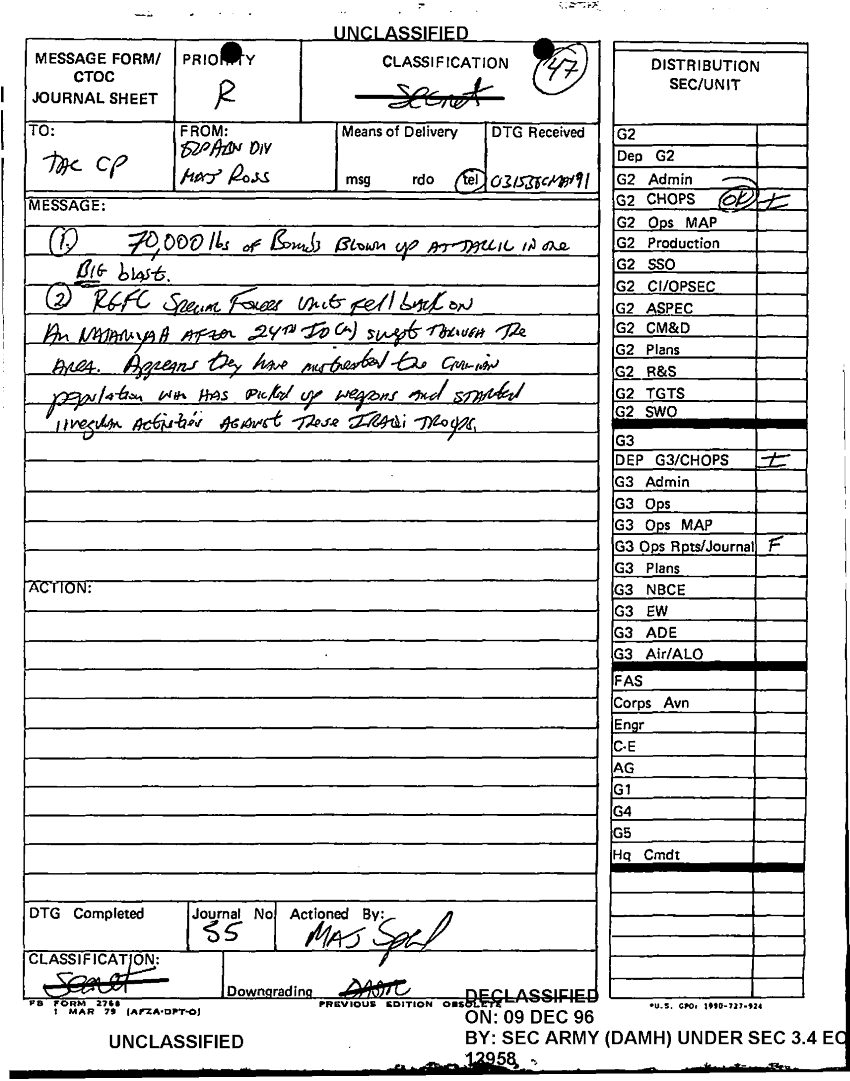 UNCLASSIFIED
MESSAGE FORM/
CTOC
JOURNAL SHEET
PRIORITY
R
CLASSIFICATION
Secret
47
TO:
TAC CP
FROM:
82D ABN DIV
MAJ ROSS
Means of Delivery
msg rdo tel
DTG Received
031538CMAR91
MESSAGE:
(1.) 70,000 lbs of Bombs Blown up AT TALLIL IN one
BIG blast.
(2) RGFC Special Forces unit fell back on
An NAJANIYAH AFTER 24TH ID(M) swept THROUGH THE
AREA. Appears they have mistreated the civilian
population who HAS Picked up weapons and STARTED
irregular Activities AGAINST These IRAQI TROOPS.
ACTION:
DTG Completed
Journal No
55
Actioned By:
MAJ
CLASSIFICATION:
Secret
Downgrading
FB FORM 2768
1 MAR 79 (AFZA-DPT-O)
PREVIOUS EDITION OBSOLETE
DISTRIBUTION
SEC/UNIT
G2
Dep G2
G2 Admin
G2 CHOPS OK I
G2 Ops MAP
G2 Production
G2 SSO
G2 CI/OPSEC
G2 ASPEC
G2 CM&D
G2 Plans
G2 R&S
G2 TGTS
G2 SWO
G3
DEP G3/CHOPS I
G3 Admin
G3 Ops
G3 Ops MAP
G3 Ops Rpts/Journal F
G3 Plans
G3 NBCE
G3 EW
G3 ADE
G3 Air/ALO
FAS
Corps Avn
Engr
C-E
AG
G1
G4
G5
Hq Cmdt
*U.S. GPO: 1990-727-924
UNCLASSIFIED
DECLASSIFIED
ON: 09 DEC 96
BY: SEC ARMY (DAMH) UNDER SEC 3.4 EO
12958